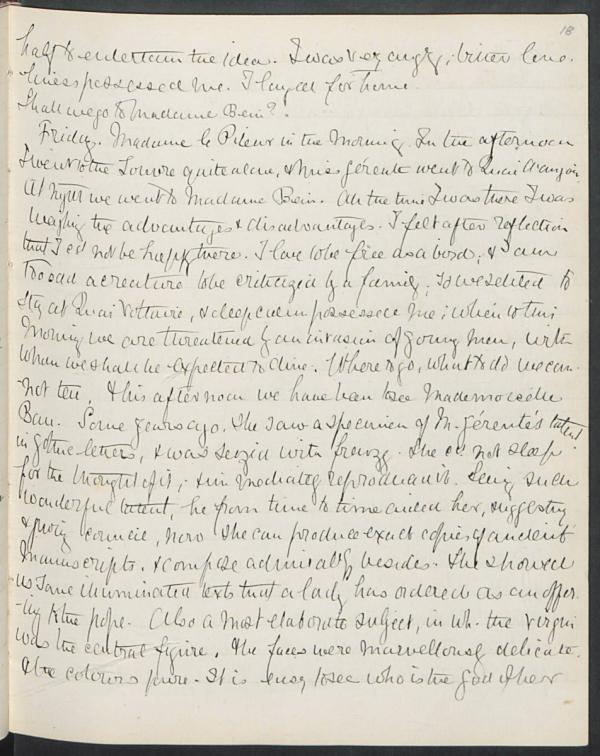 18
half to entertain the idea. I was very angry; bitter lone-
liness possessed me. I longed for home.
Shall we go to Madame Bein?.
Friday. Madame le Pileur in the morning. In the afternoon
I went to the Louvre quite alone, & Miss gérente went to Quai d'anjou
At night we went to Madame Bein. All the time I was there I was
weighing the advantages & disadvantages. I felt after reflection
that I cd not be happy there. I love to be free as a bird, & I am
too odd a creature to be criticized by a family, so we settled to
stay at Quai Voltaire, & deep calm possessed me; when lo this
morning we are threatened by an invasion of young men, with
whom we shall be expected to dine. Where to go, what to do we can-
not tell. This afternoon we have been to see Mademoiselle
Bau. Some years ago, she saw a specimen of M. gérente's talent
in gothic letters, & was seized with frenzy. She cd not sleep
for the thought of it, & immediately reproduced it. Seeing such
wonderful talent, he from time to time aided her, suggesting
& giving council, now she can produce exact copies of ancient
manuscripts, & compose admirably besides. She showed
us some illuminated texts that a lady has ordered as an offer-
ing to the pope. Also a most elaborate subject, in wh. the virgin
was the central figure. The faces were marvellously delicate.
& the colours pure. It is easy to see who is the god of her